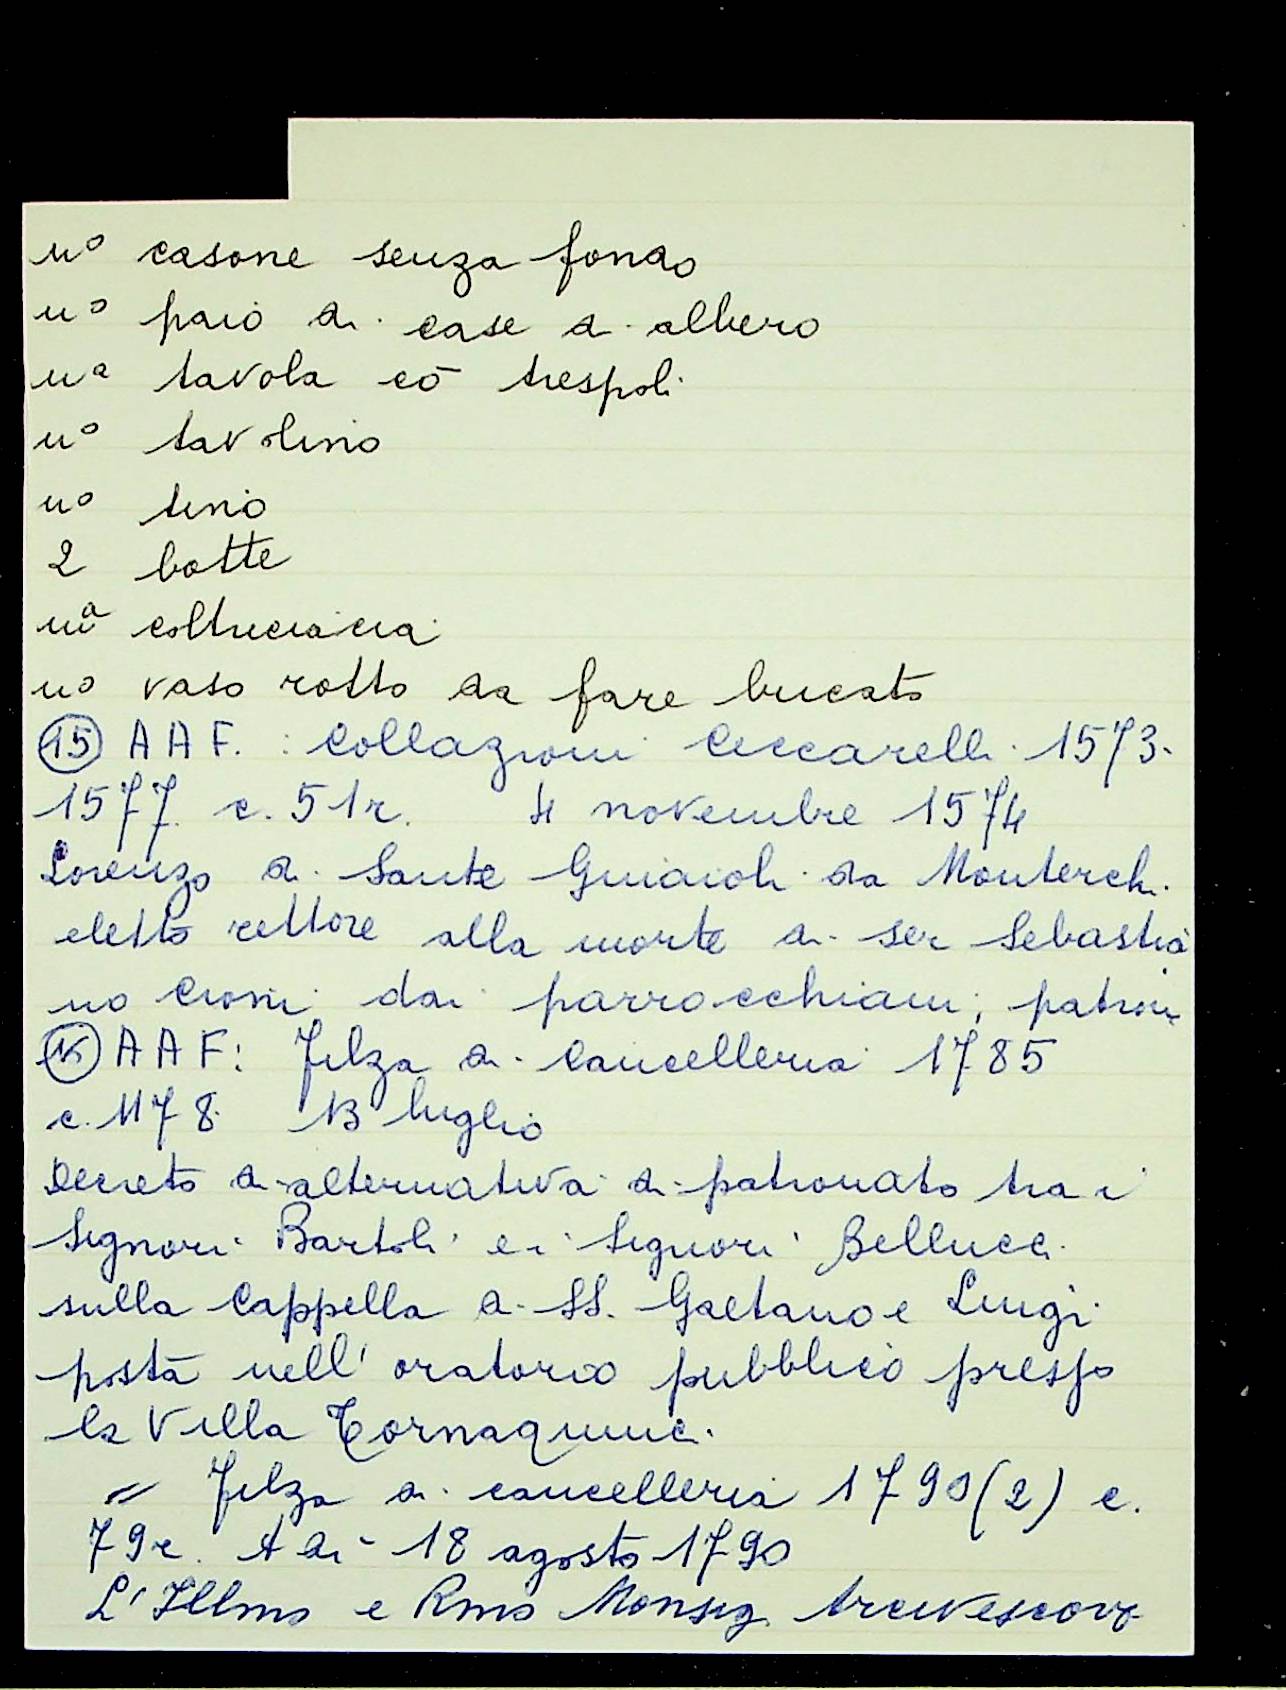 uº casone senza fondo
uº paio di case d. albero
uª tavola cō trespoli
uº tavolino
uº tino
2 botte
uª coltriciaccia
uº vaso rotto da fare bucato
(15) A A F. : Collazioni Ceccarelli 1573-
1577 c. 51r. 4 novembre 1574
Lorenzo di Sante da Monterchi
eletto rettore alla morte di ser Sebastia
no Cioni dai parrocchiani, patroni
A A F: Filza di Cancelleria 1785
c. 1178 13 luglio
Decreto di alternativa di patronato tra i
Signori Bartoli e i Signori Bellucci
sulla Cappella di SS. Gaetano e Luigi
posta nell' oratorio pubblico presso
la Villa Tornaquinci.
" Filza di cancelleria 1790 (2) c.
79r. A di 18 agosto 1790
L'Illmo e Rmo Monsig. Arcivescovo